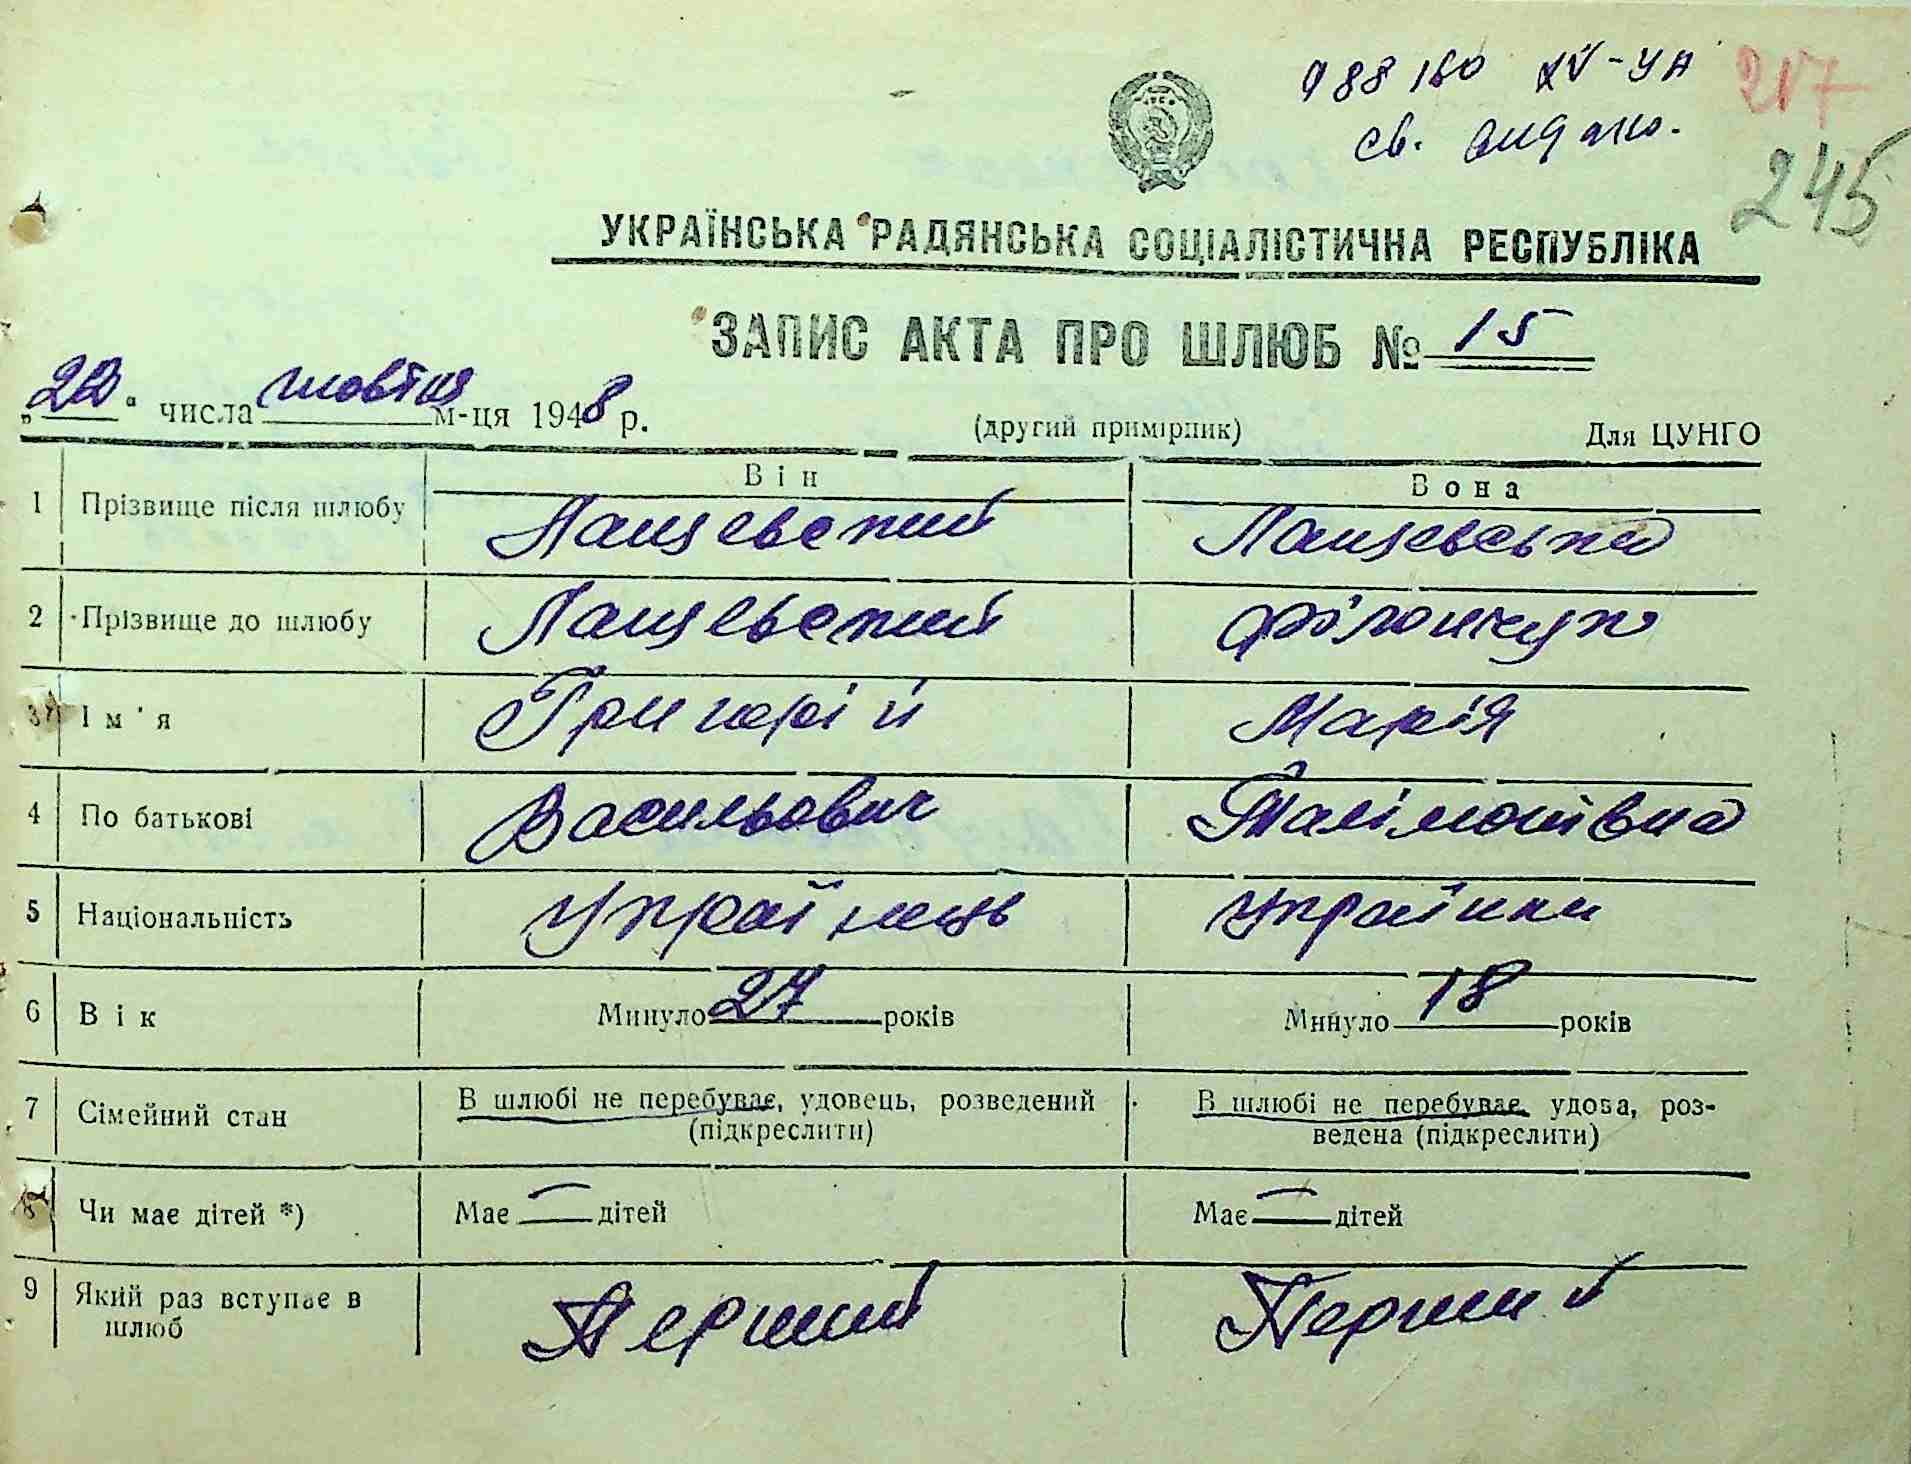 988180 XV-УА 217
св. видано. 245
УКРАЇНСЬКА РАДЯНСЬКА СОЦІАЛІСТИЧНА РЕСПУБЛІКА
ЗАПИС АКТА ПРО ШЛЮБ № 15
„22“ числа жовтня м-ця 1948 р. (другий примірник) Для ЦУНГО
Він Вона
1 Прізвище після шлюбу Лащевский Лащевська
2 Прізвище до шлюбу Лащевский
3 Ім'я Григорій Марія
4 По батькові Васильович
5 Національність Українець Українка
6 Вік Минуло 27 років Минуло 18 років
7 Сімейний стан В шлюбі не перебуває, удовець, розведений В шлюбі не перебуває, удова, роз-
(підкреслити) ведена (підкреслити)
8 Чи має дітей *) Має — дітей Має — дітей
9 Який раз вступає в Перший Перший
шлюб